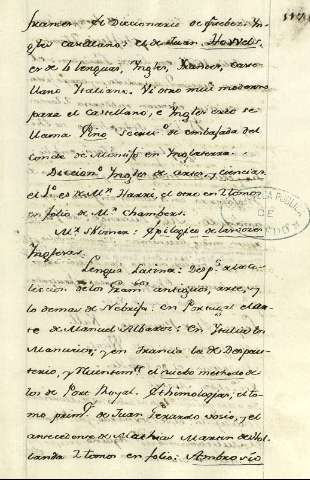 frances. El Diccionario de Greber. Yn-
gles castellano: el de Juan Howels.
es de 4 lenguas, Ingles, Frances, Caste-
llano Italiano. Vi otro mui moderno
para el castellano, è Ingles creo se
llama Pino Secret.º de embajada del
Conde de Montijo en Inglaterra.
Diccion.º Ingles de artes, y ciencias
el 1.º es de M.r Harri, el otro en 2 tomos
en folio de M.r Chambers.
M.r Skinner: Etilogico de las voces
Inglesas.
Lengua Latina: Desp.s de la
leccion de los Gram.cos antiguos, arte, y
lo demas de Nebrija: en Portugal el Ar-
te de Manuel Albarez: en Ytalia
Manucior; y en Francia la de Despau-
terio, y el nuebo methodo de
los de Port Royal. Ethimologias, el to-
mo prim.º de Juan Gerardo Vosio, y el
antecedente de Mathias Martin de Ho-
landa 2 tomos en folio: Ambrosio